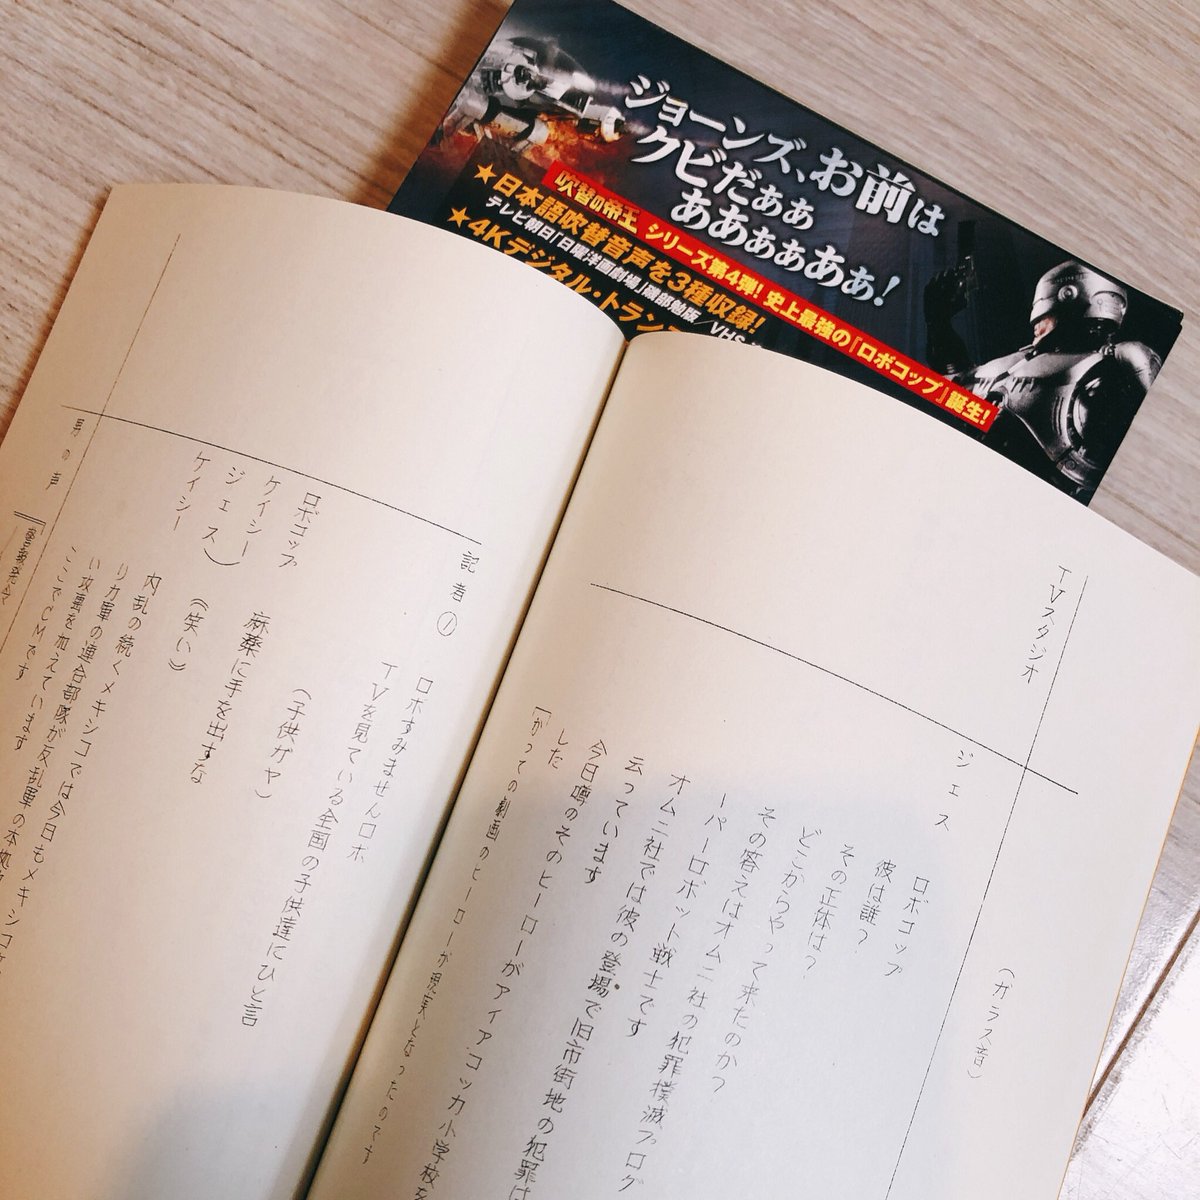 ジョーンズ、お前は
クビだぁぁ
あああぁあぁ!
吹替の帝王 シリーズ第4弾! 史上最強の『ロボコップ』誕生!
★日本語吹替音声を3種収録!
テレビ朝日「日曜洋画劇場」磯部勉版/VHS
★4Kデジタル・トラン
TVスタジオ
(ガラス音)
ジェス
ロボコップ
彼は誰?
その正体は?
どこからやって来たのか?
その答えはオムニ社の犯罪撲滅プログ
ーパーロボット戦士です
オムニ社では彼の登場で旧市街地の犯罪は
云っています
今日噂のそのヒーローがアイアコッカ小学校を
した
「かつての劇画のヒーローが現実となったのです
記者①
ロボすみませんロボ
TVを見ている全国の子供達にひと言
(子供ガヤ)
ロボコップ
麻薬に手を出すな
ケイシー
ジェス)
《笑い》
ケイシー
内乱の続くメキシコでは今日もメキシコ
リカ軍の連合部隊が反乱軍の本拠
い攻撃を加えています
ここでCMです
男の声